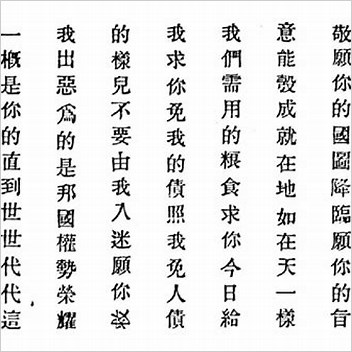 敬願你的國圖降臨願你的旨
意能彀成就在地如在天一樣
我們需用的粮食求你今日給
我求你免我的債照我免人債
的樣兒不要由我入迷願你
我出惡爲的是邦國權勢榮耀
一概是你的直到世世代代這